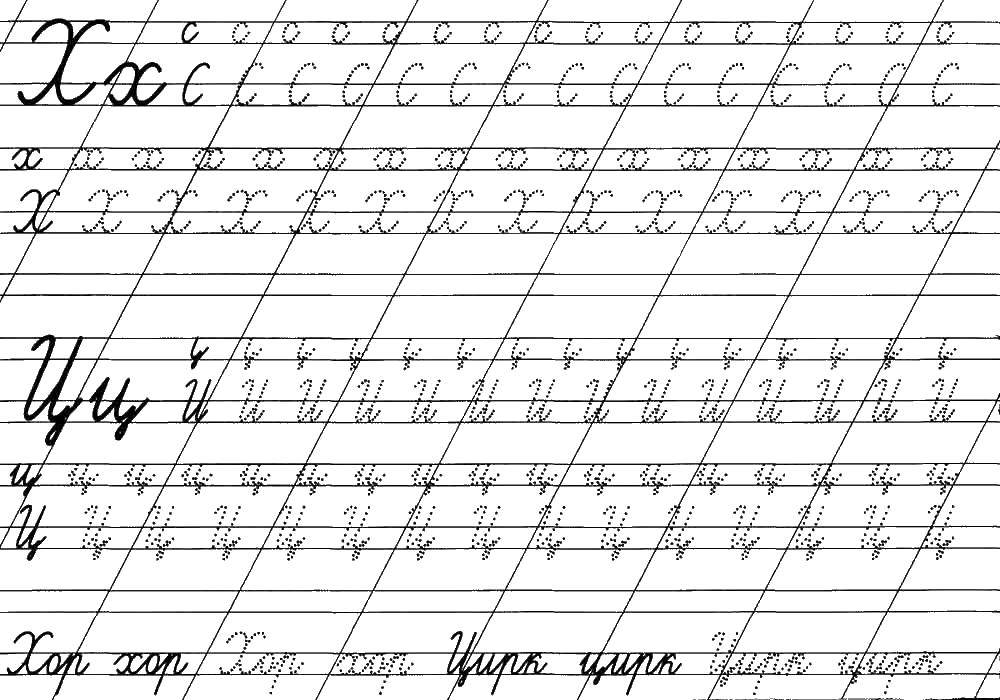 Хх с с с с с с с с с с с с с с с с
С С С С С С С С С С С С С С С
х х х х х х х х х х х х х х х х
Х Х Х Х Х Х Х Х Х Х Х Х Х Х
Цц
И И И И И И И И И И И И И И
ц ц ц ц ц ц ц ц ц ц ц ц ц ц ц ц ц
Ц Ц Ц Ц Ц Ц Ц Ц Ц Ц Ц Ц Ц Ц Ц
Хор хор Хор хор Цирк цирк Цирк цирк